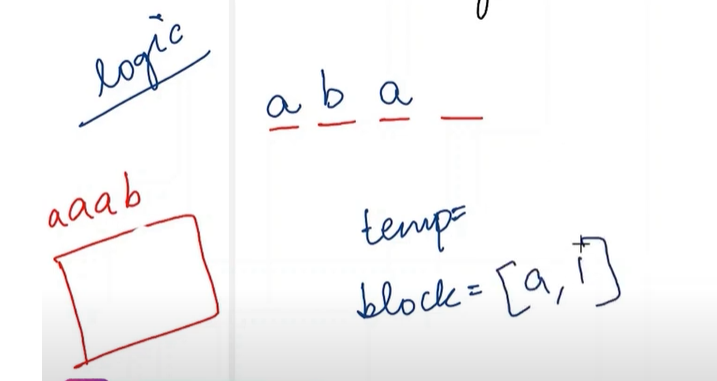 logic
a b a _
aaab
temp=
block = [a, i]